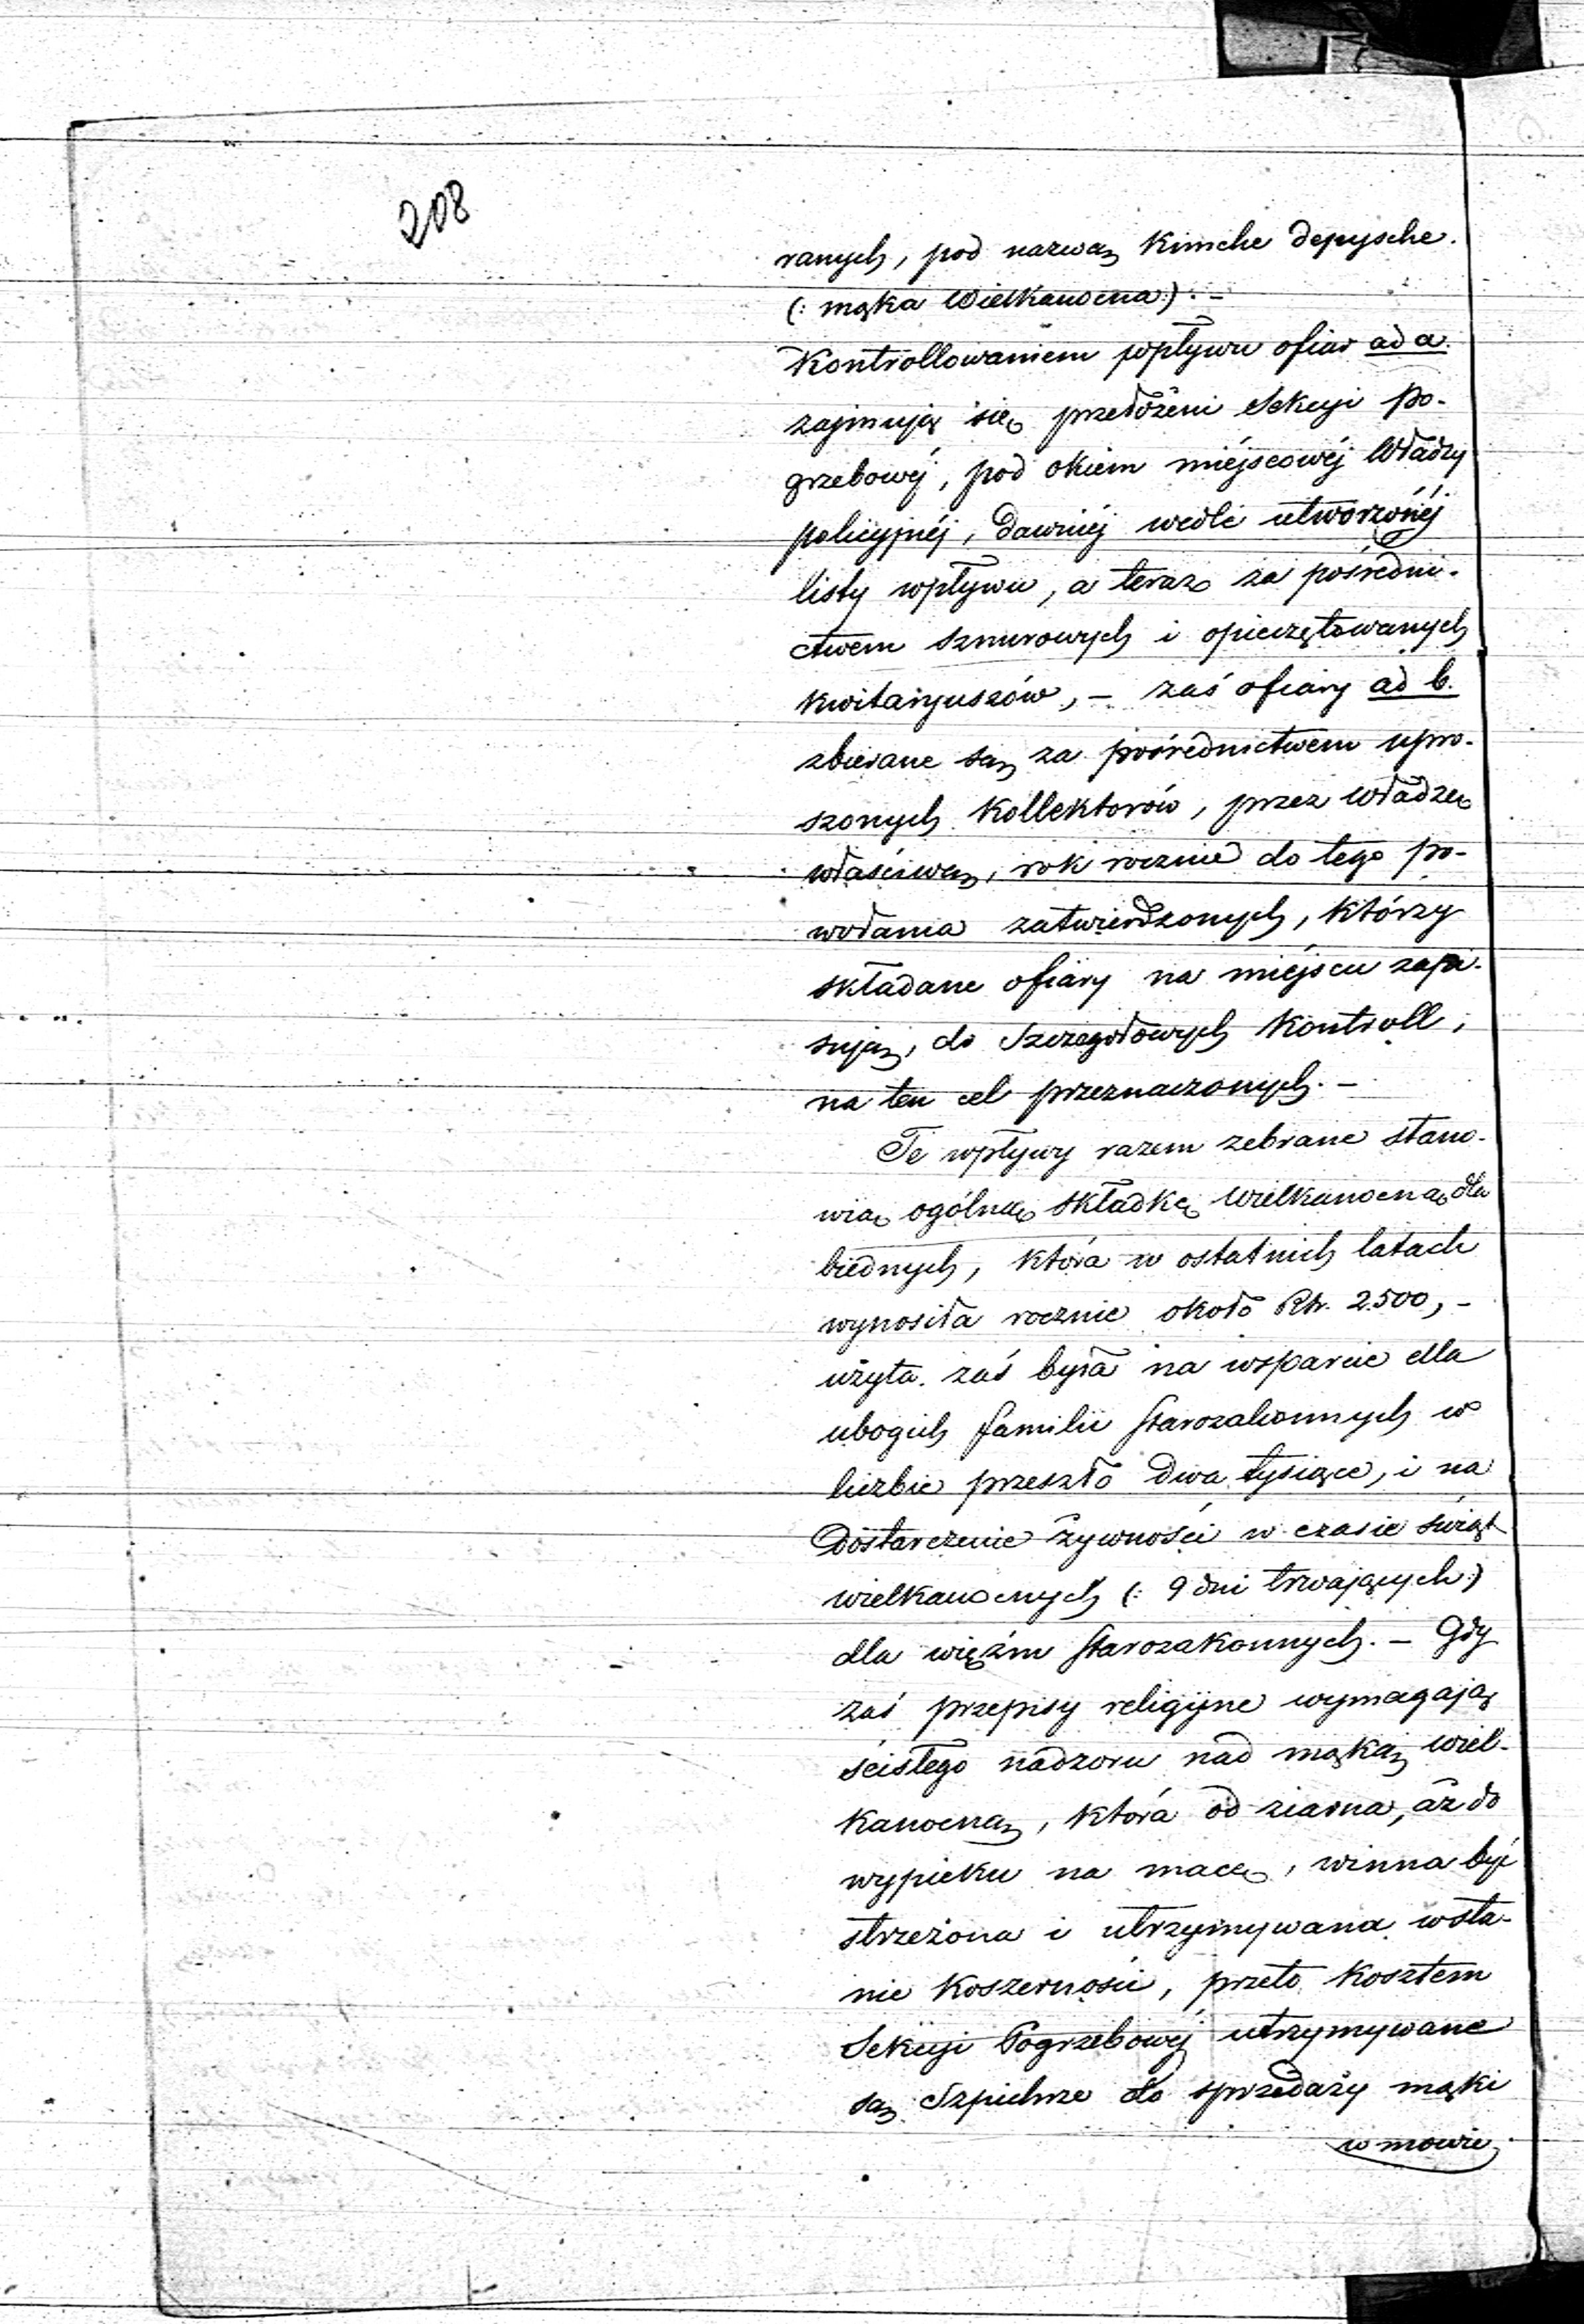 208
ranych, pod nazwą Kimche depysche.
(: mąka Wielkanocna:). –
Kontrollowaniem wpływu ofiar ad a.
zajmują się przełożeni Sekcyi po-
grzebowéj, pod okiem miéjscowéj Władzy
policyjnéj, dawniéj wedle utworzonéj
listy wpływu, a teraz za pośredni-
ctwem sznurowych i opieczętowanych
kwitaryuszów, – zaś ofiary ad b.
zbierane są za pośrednictwem upro-
szonych Kollektorów, przez Władzę
właściwą, rok rocznie do tego po-
wołania zatwierdzonych, którzy
składane ofiary na miéjscu zapi-
sują, do szczegółowych Kontroll,
na ten cel przeznaczonych. –
Te wpływy razem zebrane stano-
wią ogólną składkę Wielkanocną dla
biednych, która w ostatnich latach
wynosiła rocznie około Rb. 2.500, –
użyta zaś była na wsparcie dla
ubogich familii starozakonnych w
liczbie przeszło dwa tysiące, i na
dostarczenie żywności w czasie świąt
wielkanocnych (: 9 dni trwających:)
dla więźni starozakonnych. – Gdy
zaś przepisy religijne wymagają
ścisłego nadzoru nad mąką wiel-
kanocną, która od ziarna, aż do
wypieku na macę, winna być
strzeżona i utrzymywana w sta-
nie koszerności, przeto kosztem
Sekcyi Pogrzebowéj utrzymywane
są Szpichrze do sprzedaży mąki
w mowie